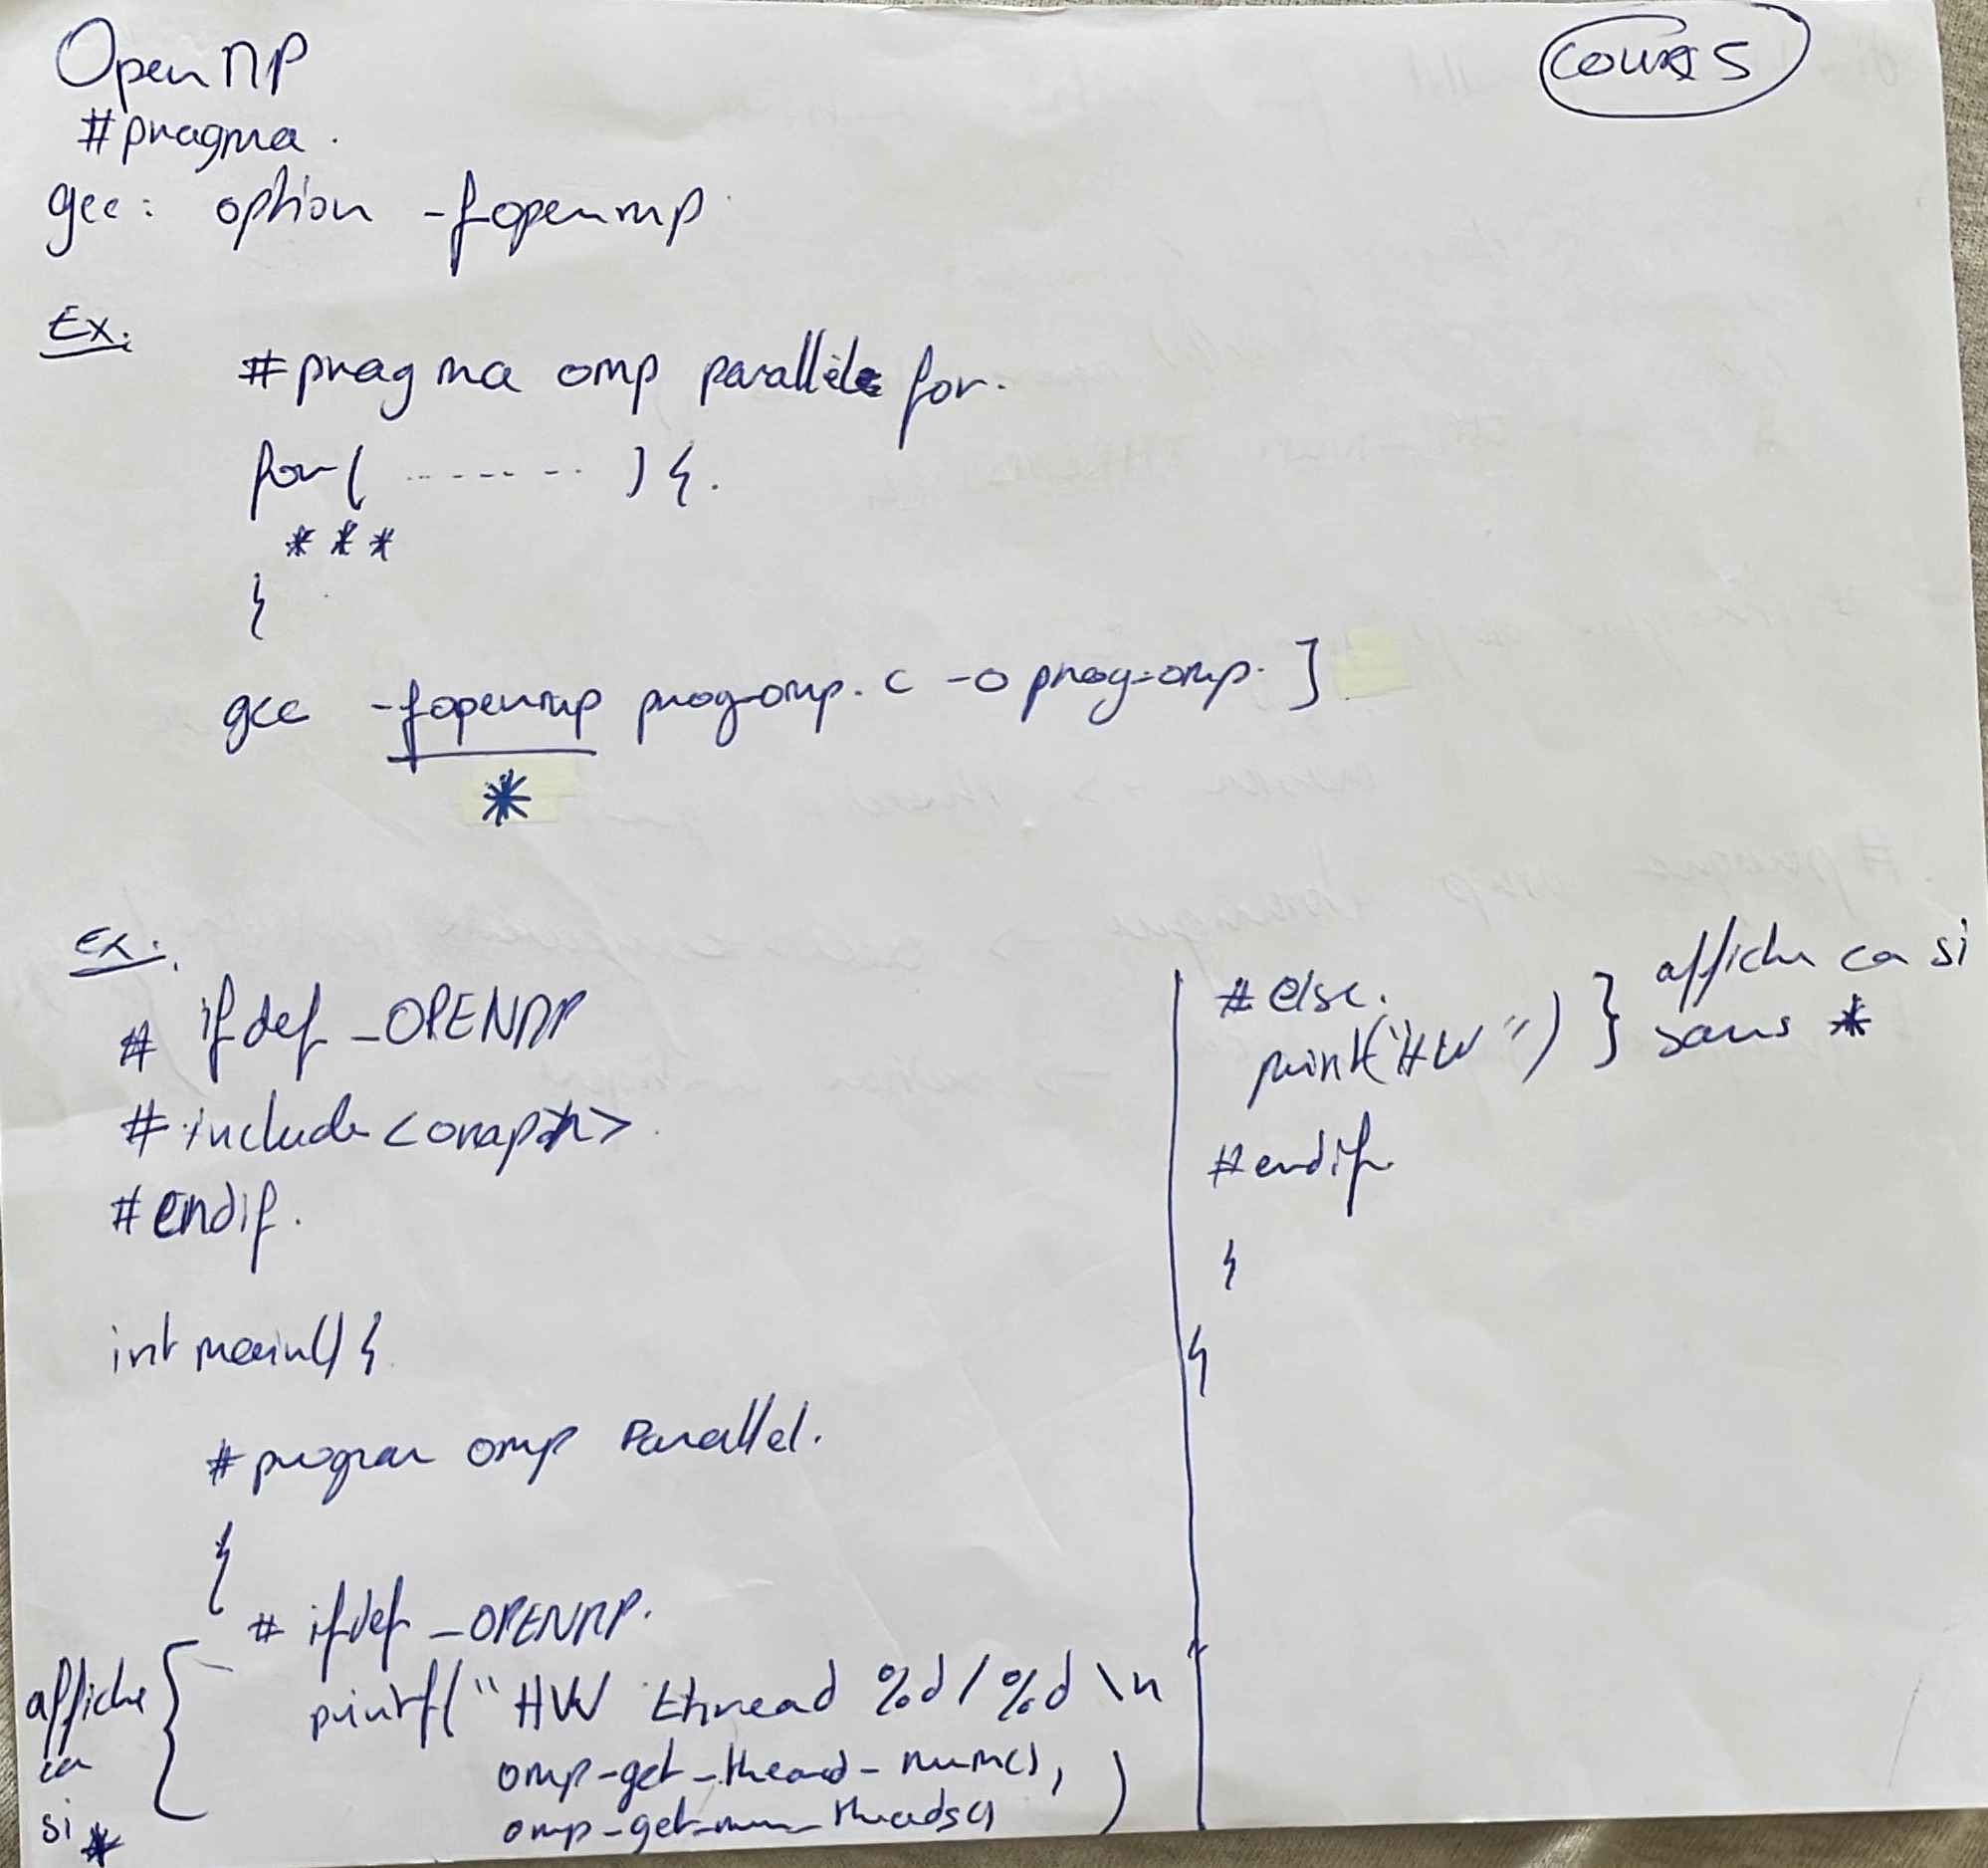 OpenMP
COURS 5
#pragma.
gcc: option -fopenmp
Ex:
#pragma omp parallele for.
for( ........ ) {.
* * *
}
gcc -fopenmp prog-omp.c -o prog-omp. ]
*
Ex:
# ifdef _OPENMP
# include <omp.h>
#endif.
int main() {
#program omp Parallel.
{
# ifdef _OPENMP.
printf("HW thread %d/%d \n"
omp-get_thead-num(),
omp-get_num_threads()
)
affiche
ca
si *
#else.
printf("HW")
} affiche ca si
sans *
#endif
}
}